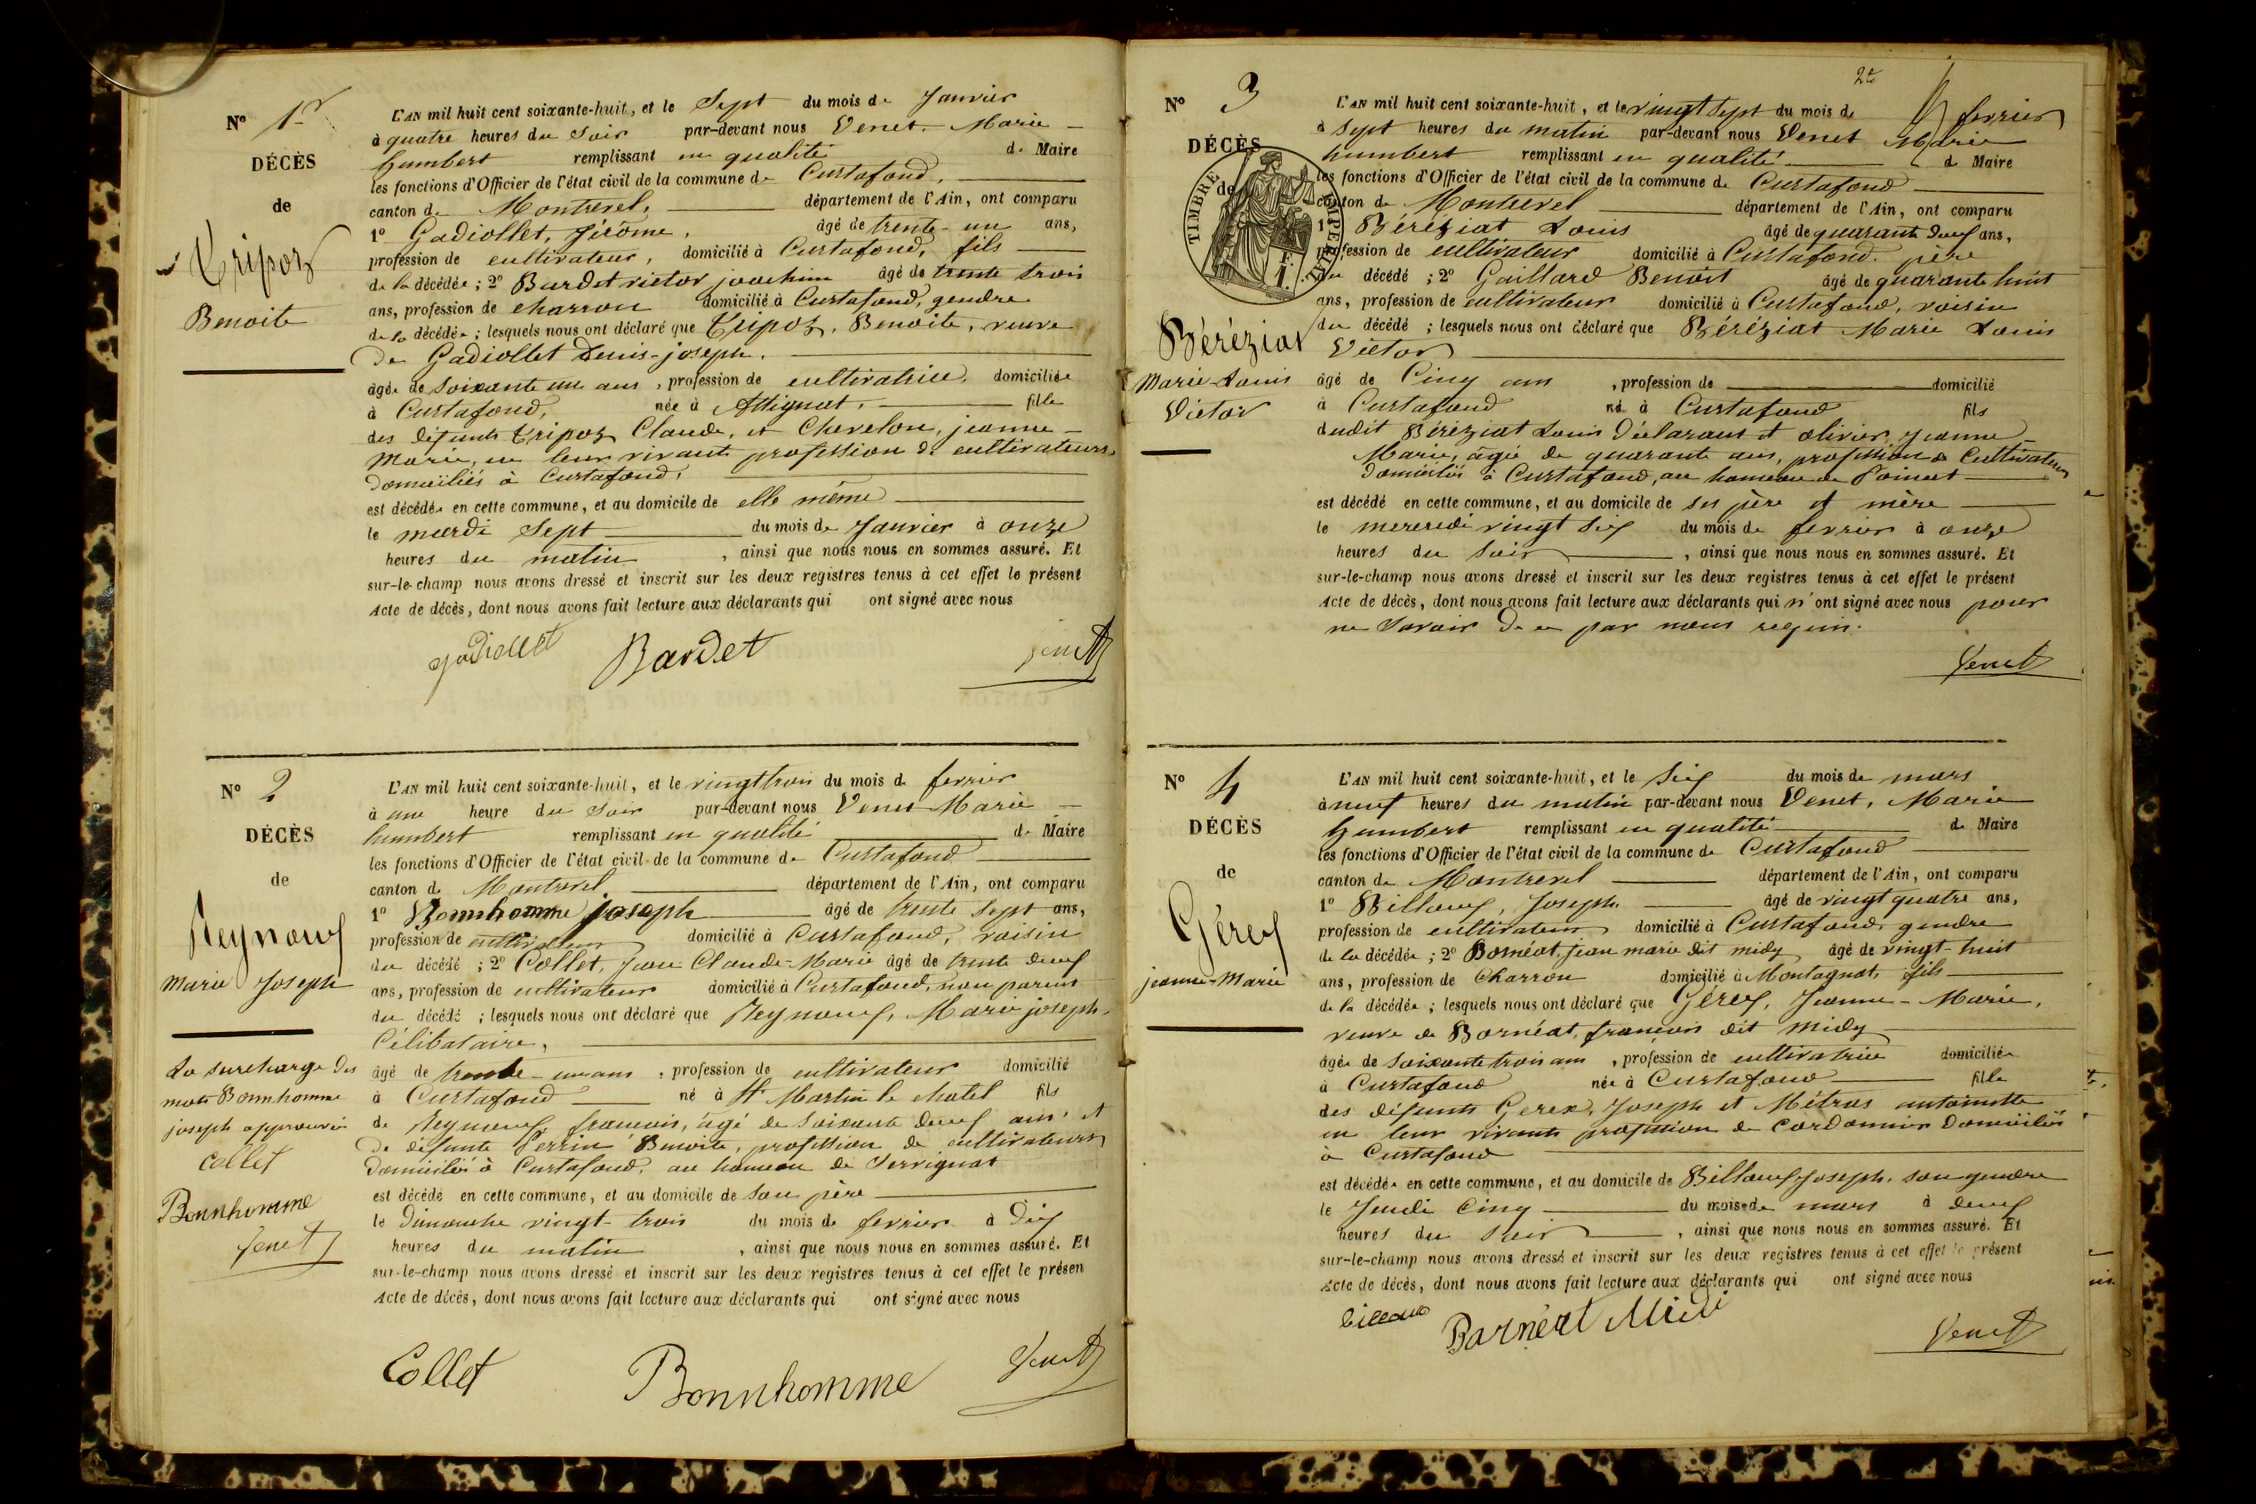 N° 1er
DÉCÈS
de
Tripoz
Benoite
L'AN mil huit cent soixante-huit, et le Sept du mois de Janvier
à quatre heures du Soir par-devant nous Venet Marie
humbert remplissant en qualité de Maire
les fonctions d'Officier de l'état civil de la commune de Curtafond,
canton de Montrevel, département de l'Ain, ont comparu
1° Gadiollet, Jérome, âgé de trente-un ans,
profession de cultivateur, domicilié à Curtafond, fils
de la décédée ; 2° Bardet victor joachim âgé de trente trois
ans, profession de charron domicilié à Curtafond, gendre
de la décédée ; lesquels nous ont déclaré que Tripoz, Benoite, veuve
de Gadiollet Denis-joseph.
âgée de Soixante un ans, profession de cultivatrice, domiciliée
à Curtafond, née à Attignat, fille
des défunts Tripoz Claude, et Chevelon, jeanne-
Marie, en leur vivant profession de cultivateurs
Domiciliés à Curtafond,
est décédée en cette commune, et au domicile de elle même
le mardi Sept du mois de Janvier à onze
heures du matin, ainsi que nous nous en sommes assuré. Et
sur-le-champ nous avons dressé et inscrit sur les deux registres tenus à cet effet le présent
Acte de décès, dont nous avons fait lecture aux déclarants qui ont signé avec nous
Gadiollet Bardet Venet
N° 2
DÉCÈS
de
Reynoeuf
Marie Joseph
La surcharge des
mots Bonnhomme
joseph approuvée
Collet
Bonnhomme
Venet
L'AN mil huit cent soixante-huit, et le vingt trois du mois de fevrier
à une heure du Soir par-devant nous Venet Marie
humbert remplissant en qualité de Maire
les fonctions d'Officier de l'état civil de la commune de Curtafond
canton de Montrevel département de l'Ain, ont comparu
1° Bonnhomme joseph âgé de trente Sept ans,
profession de cultivateur domicilié à Curtafond, voisin
du décédé ; 2° Collet, Jean Claude-Marie âgé de trente deux
ans, profession de cultivateur domicilié à Curtafond, non parent
du décédé ; lesquels nous ont déclaré que Reynoeuf, Marie joseph.
Célibataire,
âgé de trente-un ans, profession de cultivateur domicilié
à Curtafond né à St Martin le chatel fils
de Reynoeuf françois, âgé de Soixante deux ans, et
de défunte Perrin Benoite, profession de cultivateurs
Domiciliés à Curtafond, au hameau de Servignat
est décédé en cette commune, et au domicile de Son père
le Dimanche vingt-trois du mois de fevrier à Dix
heures du matin, ainsi que nous nous en sommes assuré. Et
sur-le-champ nous avons dressé et inscrit sur les deux registres tenus à cet effet le présen
Acte de décès, dont nous avons fait lecture aux déclarants qui ont signé avec nous
Collet Bonnhomme Venet
2e
N° 3
DÉCÈS
de
TIMBRE IMPERIAL
Béréziat
Marie-Louis
Victor
L'AN mil huit cent soixante-huit, et le vingt Sept du mois de fevrier
à Sept heures du matin par-devant nous Venet Marie
humbert remplissant en qualité de Maire
les fonctions d'Officier de l'état civil de la commune de Curtafond
canton de Montrevel département de l'Ain, ont comparu
1° Béréziat Louis âgé de quarante deux ans,
profession de cultivateur domicilié à Curtafond. père
du décédé ; 2° Gaillard Benoit âgé de quarante huit
ans, profession de cultivateur domicilié à Curtafond, voisin
du décédé ; lesquels nous ont déclaré que Béréziat Marie Louis
Victor
âgé de Cinq ans, profession de domicilié
à Curtafond né à Curtafond fils
dudit Béréziat Louis Déclarant et olivier Jeanne-
Marie, âgée de quarante ans, profession de Cultivateurs
Domiciliés à Curtafond, au hameau de
est décédé en cette commune, et au domicile de ses père et mère
le mercredi vingt Six du mois de fevrier à onze
heures du Soir, ainsi que nous nous en sommes assuré. Et
sur-le-champ nous avons dressé et inscrit sur les deux registres tenus à cet effet le présent
Acte de décès, dont nous avons fait lecture aux déclarants qui n'ont signé avec nous pour
ne Savoir De ce par nous requis.
Venet
N° 4
DÉCÈS
de
Gérex
jeanne-Marie
L'AN mil huit cent soixante-huit, et le Six du mois de mars
à neuf heures du matin par-devant nous Venet, Marie
humbert remplissant en qualité de Maire
les fonctions d'Officier de l'état civil de la commune de Curtafond
canton de Montrevel département de l'Ain, ont comparu
1° Billoux, Joseph. âgé de vingt quatre ans,
profession de cultivateur domicilié à Curtafond, gendre
de la décédée ; 2° Bornéat, jean marie dit midy âgé de vingt-huit
ans, profession de Charron domicilié à Montagnat, fils
de la décédée ; lesquels nous ont déclaré que Gérex, Jeanne-Marie,
veuve de Bornéat, françois dit Midy
âgée de Soixante trois ans, profession de cultivatrice domiciliée
à Curtafond née à Curtafond fille
des défunts Gerex, Joseph et Métras antoinette
en leur vivants profession de Cordonnier Domiciliés
à Curtafond
est décédée en cette commune, et au domicile de Billoux Joseph, son gendre
le Jeudi Cinq du mois de mars à deux
heures du Soir, ainsi que nous nous en sommes assuré. Et
sur-le-champ nous avons dressé et inscrit sur les deux registres tenus à cet effet le présent
Acte de décès, dont nous avons fait lecture aux déclarants qui ont signé avec nous
Billoux Barnéat Midi Venet